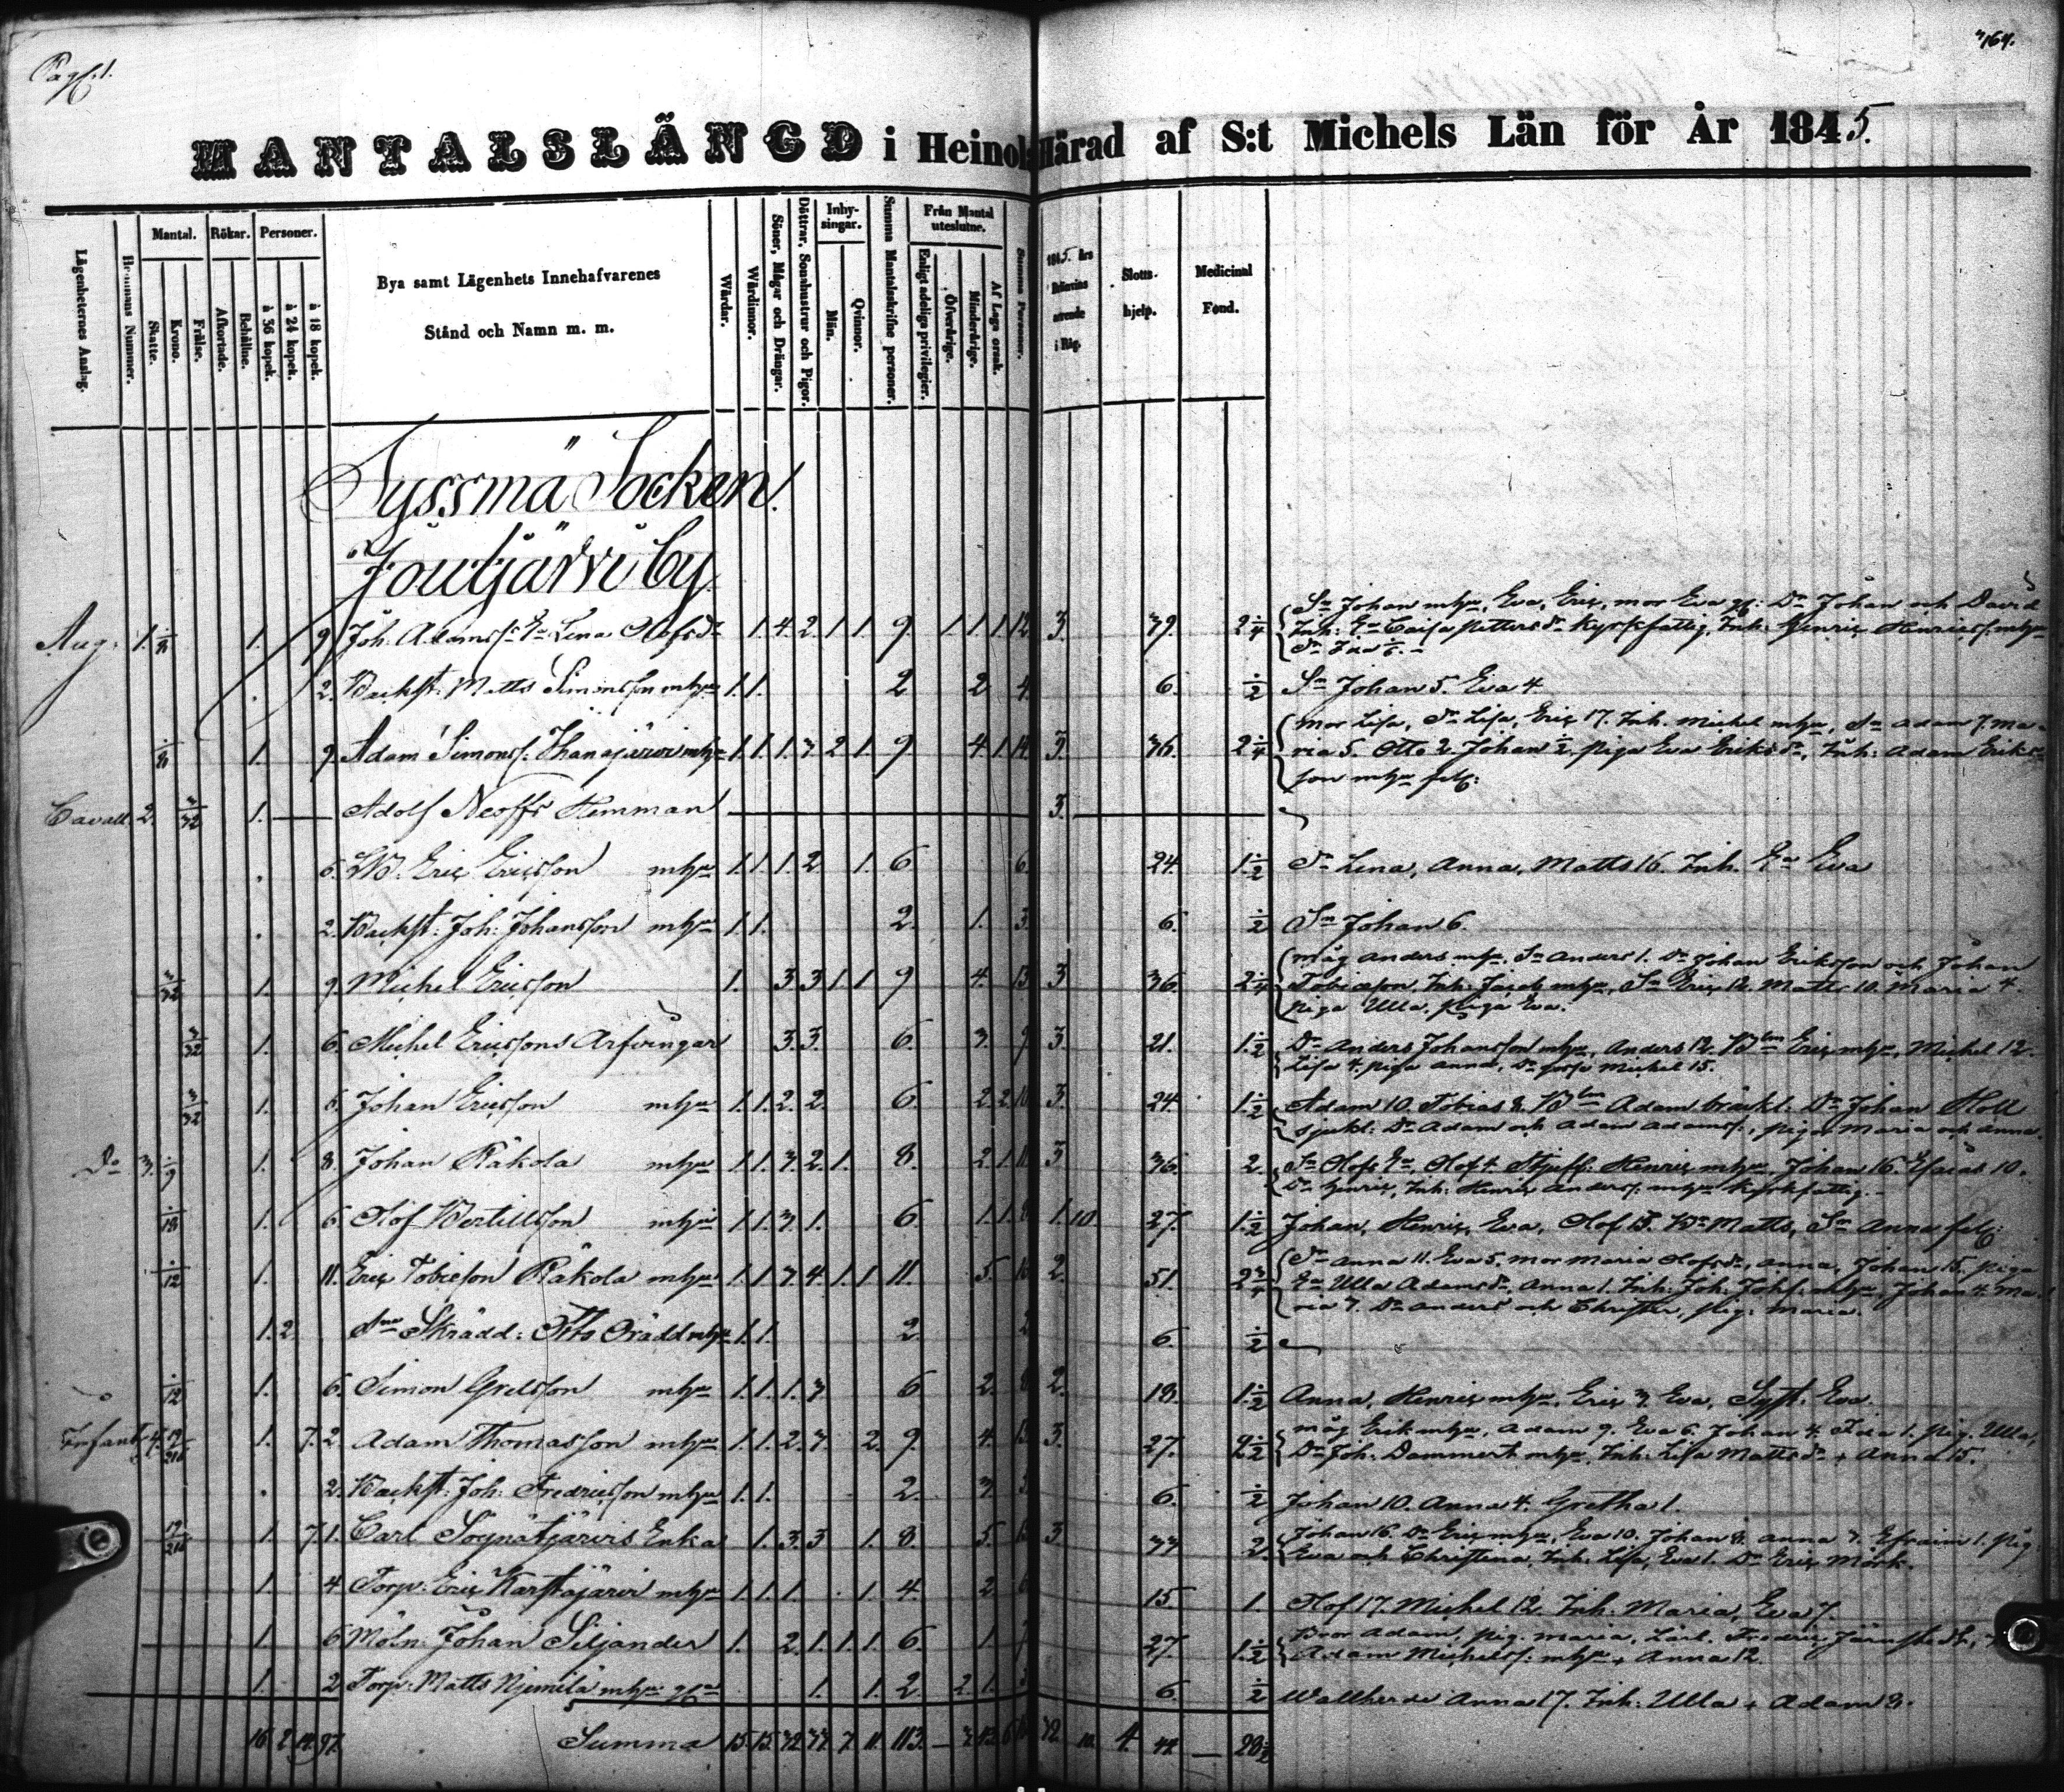 Pag: 1.
164.
MANTALSLÄNGD i Heinola Härad af S:t Michels Län för År 1845.
Lägenheternes Anslag.
Hemmans Nummer.
Mantal.
Skatte.
Krono.
Frälse.
Rökar.
Afkortade.
Behållne.
Personer.
à 36 kopek.
à 24 kopek.
à 18 kopek.
Bya samt Lägenhets Innehafvarenes
Stånd och Namn m. m.
Wärdar.
Wärdinnor.
Söner, Mågar och Drängar.
Döttrar, Sonahustrur och Pigor.
Inhysingar.
Män.
Qvinnor.
Summa Mantalsskrifne personer.
Från Mantal uteslutne.
Enligt adeliga privilegier.
Öfveråriga.
Minderårige.
Af Laga orsak.
Summa Personer.
1845 års
i Råg.
Slotts-
hjelp.
Medicinal
Fond.
Syssmä Socken.
Joutjärvi by.
Aug: 1. 1/8 1. 9. Joh. Adamss: Ea Lena Olofsdr 1. 4. 2. 1. 1. 9. 1. 1. 1. 12. 3. 39. 2 1/4 Sn Johan mhu, Eva, Eric, mor Eva Dr Johan och David
Inh: Ea Caisa Pettersdr Kyrkfattig, Inh: Henric Henricss: mhu
2. Backst: Matts Simonsson mhu 1. 1. 2. 2. 4. 6. 1/2 Sn Johan 5. Eva 4
1/8 1. 9. Adam Simonss: Ihanajärvi mhu 1. 1. 1. 3. 2. 1. 9. 4. 1. 14. 3. 36. 2 1/4 mor Lisa, Dr Lisa, Eric 17. Inh. Michel mhu, Sn Adam 7. Ma-
ria 5. Otto 2. Johan 1/2. piga Eva Eriksdr, Inh: Adam Eriks-
son mhu
Cavall. 2. 3/32 1. Adolf Neoffs Hemman 3.
6. LB. Eric Ericsson mhu 1. 1. 1. 2. 1. 6. 6. 24. 1 1/2 Dr Lena, Anna, Matts 16. Inh. Ea Eva
2. Backst: Joh: Johansson mhu 1. 1. 2. 1. 3. 6. 1/2 Sn Johan 6.
3/32 1. 9. Michel Ericsson 1. 3. 3. 1. 1. 9. 4. 13. 3. 36. 2 1/4 måg Anders mhu. Sn Anders 1. Dr Johan Eriksson och Johan
Tobiasson, Inh: Jacob mhu, Sn Eric 12. Matts 10. Maria 4.
piga Ulla, piga Eva.
3/32 1. 6. Michel Ericssons Arfvingar 3. 3. 6. 3. 9. 3. 21. 1 1/2 Dr Anders Johansson mhu, Anders 12. Eric mhu, Michel 12.
Lisa 4. piga Anna, Michel 15.
3/32 1. 6. Johan Ericsson mhu 1. 1. 2. 2. 6. 2. 2. 10. 3. 24. 1 1/2 Adam 10. Tobias 8. Adam bräckl: Dr Johan Holl
sjukl: Dr Adam och Adam Adamss:, pigor Maria och Anna.
Do 3. 1/9 1. 8. Johan Räkola mhu 1. 1. 3. 2. 1. 8. 2. 1. 11. 3. 36. 2. Sn Olofs Ea, Olof 4. Styfs: Henric mhu. Johan 16. Esaias 10.
Dr Henric, Inh: Henric Anderss: mhu Kyrkfattig.
1/18 1. 6. Olof Bertillsson mhu 1. 1. 3. 1. 6. 1. 1. 8. 1. 10. 27. 1 1/2 Johan, Henric, Eva, Olof 15. Matts, Anna
1/12 1. 11. Eric Tobiesson Räkola mhu 1. 1. 3. 4. 1. 1. 11. 5. 16. 2. 51. 2 3/4 Dr Anna 11. Eva 5. mor Maria Olofsdr, Anna, Johan 15. piga
Ea Ulla Adamsdr, Anna 1. Inh: Joh: Johs: mhu, Johan 4. Ma-
ria 7. Dr Anders och Christer, pig: Maria.
1. 2. Skrädd: Otto Orädd mhu 1. 1. 2. 2 6. 1/2
1/12 1. 6. Simon Grelsson mhu 1. 1. 1. 3. 6 2. 8 2. 18. 1 1/2 Anna, Henric mhu, Eric 3. Eva, Syst: Eva.
Infant. 4. 19/216 1. 7. 2. Adam Thomasson mhu 1. 1. 2. 3. 2. 9. 4. 13 3. 27. 2 1/2 måg Erik mhu, Adam 9. Eva 6. Johan 4. Ida 1. pig. Ulla,
Dr Joh: Dammert mhu, Inh: Lisa Mattsdr + Anna 15.
2. Backst: Joh: Fredricsson mhu 1. 1. 2. 3. 5 6. 1/2 Johan 10. Anna 4. Gretha 1.
19/216 1. 7. 1. Carl Sognätjärvis Enka 1. 3. 3 1. 8. 5. 13 3 33 2. Johan 16. Dr Eric mhu, Eva 10. Johan 8. Anna 3. Efraim 1. pig
Eva och Christina, Inh: Lisa, Eva 1. Dr Eric Mörk.
1. 4 Torp: Eric Karstajärvi mhu 1. 1. 1. 1. 4. 2 6 15 1. Olof 17. Michel 12. Inh: Maria, Eva 7.
1. 6 Möln: Johan Siljander 1. 2. 1. 1. 1. 6. 1. 7 27. 1 1/2 Bror Adam, pig. Maria, Lärl. Fredric Järnstedt,
Adam Michelss: mhu + Anna 12.
1. 2 Torp: Matts Njemilä mhu 1. 1. 2. 2. 1. 6. 1/2 Wallherde Anna 17. Inh: Ulla + Adam 8.
16. 2. 14. 97. Summa 15. 15. 32. 37. 7. 11. 113. — 32. 10. 4. 44. — 28 1/2